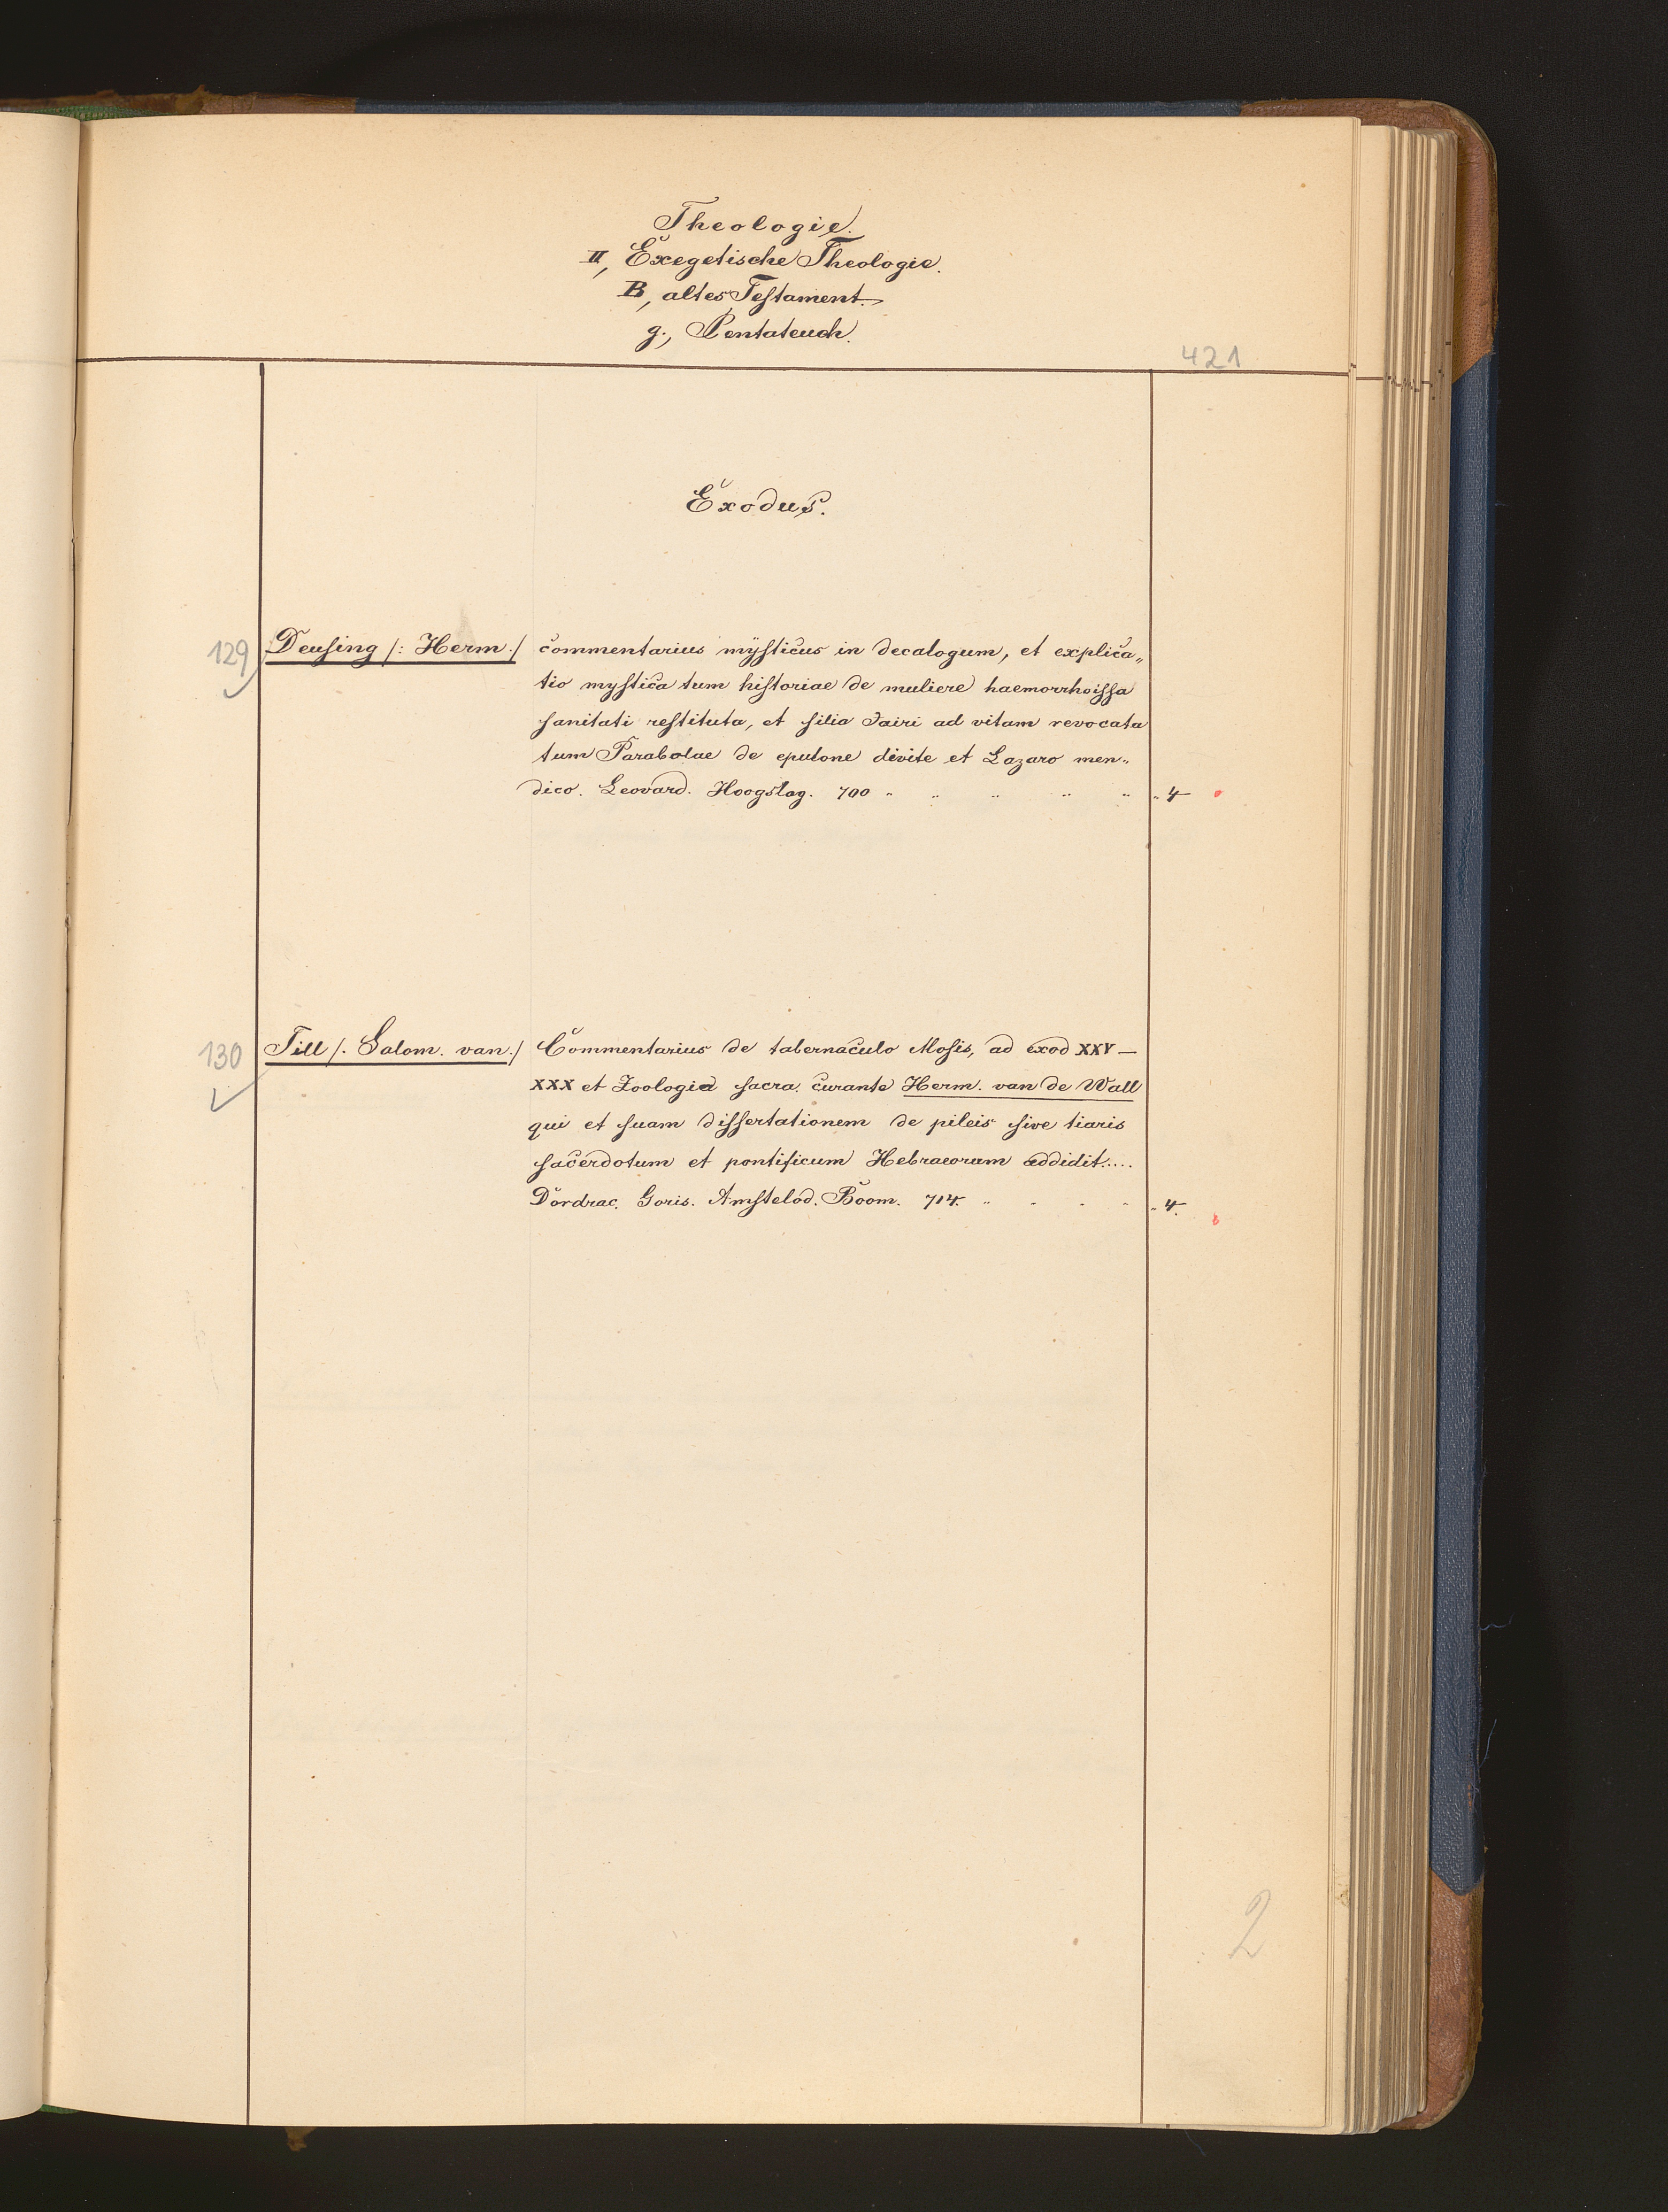 Theologie.
II, Exegetische Theologie.
B, altes Testament.
g., Pentateuch.
421
Exodus.
129 Deusing /: Herm./ commentarius mysticus in decalogum, et explica„
tio mystica tum historiae de muliere haemorrhoissa
sanitati restituta, et filia Jairi ad vitam revocata
tum Parabolae de epulone divite et Lazaro men„
dico. Leovard. Hoogslag. 700 " " " " " " 4
130 Till /. Salom. van./ Commentarius de tabernaculo Mosis, ad exod XXV–
XXX et Zoologia sacra. curante Herm. van de Wall
qui et suam dissertationem de pileis sive tiaris
sacerdotum et pontificum Hebraeorum addidit.....
Dordrac. Goris. Amstelod. Boom. 714. " " " " " 4.
2